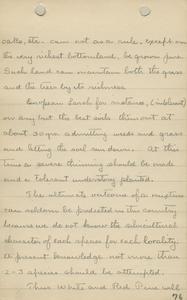 oaks, etc. can not as a rule, except on
the very richest bottomland, be grown pure.
Such land can maintain both the grass
and the trees by its richness
European Larch for instance, (intolerant)
on any but the best soils thins out at
about 30 yrs. admitting weeds and grass
and letting the soil run down. At this
time a severe thinning should be made
and a tolerant understory planted.
The ultimate outcome of a mixture
can seldom be predicted in this country
because we do not know the silvicultural
character of each species for each locality.
At present knowledge not more than
2-3 species should be attempted.
Thus White and Red Pine will
76